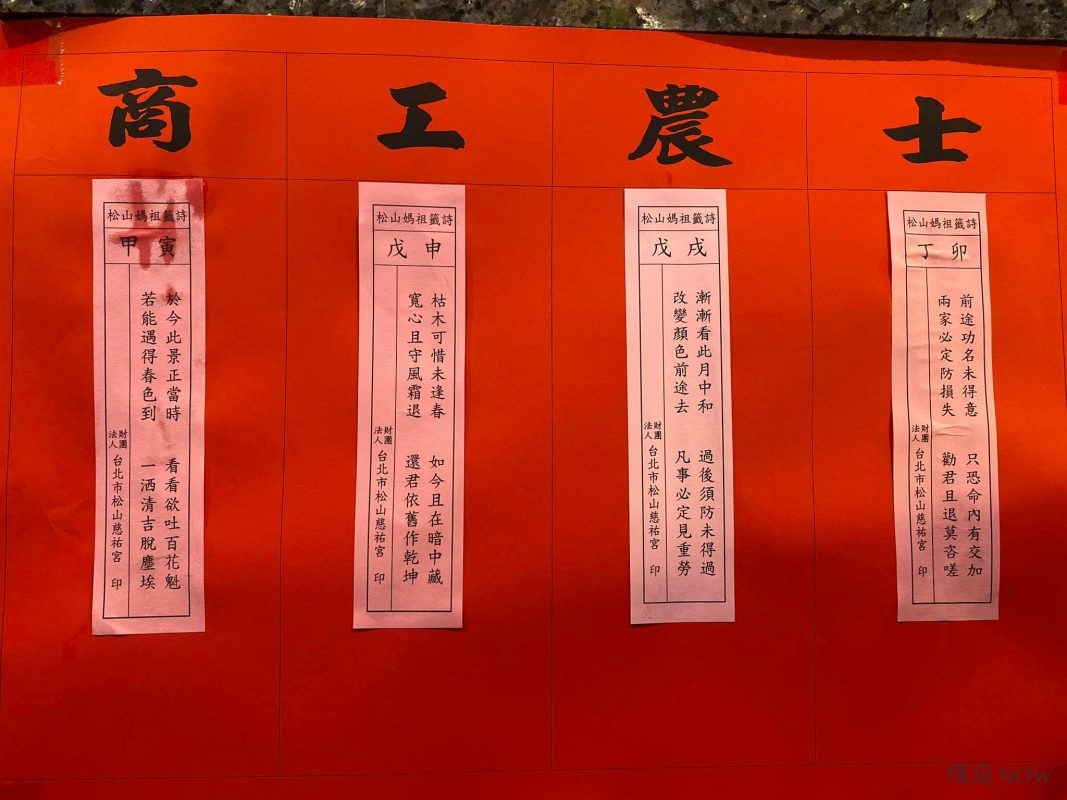 士
農
工
商
松山媽祖籤詩
丁卯
前途功名未得意
只恐命內有交加
兩家必定防損失
勸君且退莫咨嗟
財團
法人
台北市松山慈祐宮 印
松山媽祖籤詩
戊戌
漸漸看此月中和
過後須防未得過
改變顏色前途去
凡事必定見重勞
財團
法人
台北市松山慈祐宮 印
松山媽祖籤詩
戊申
枯木可惜未逢春
如今且在暗中藏
寬心且守風霜退
還君依舊作乾坤
財團
法人
台北市松山慈祐宮 印
松山媽祖籤詩
甲寅
於今此景正當時
看看欲吐百花魁
若能遇得春色到
一洒清吉脫塵埃
財團
法人
台北市松山慈祐宮 印
NOW